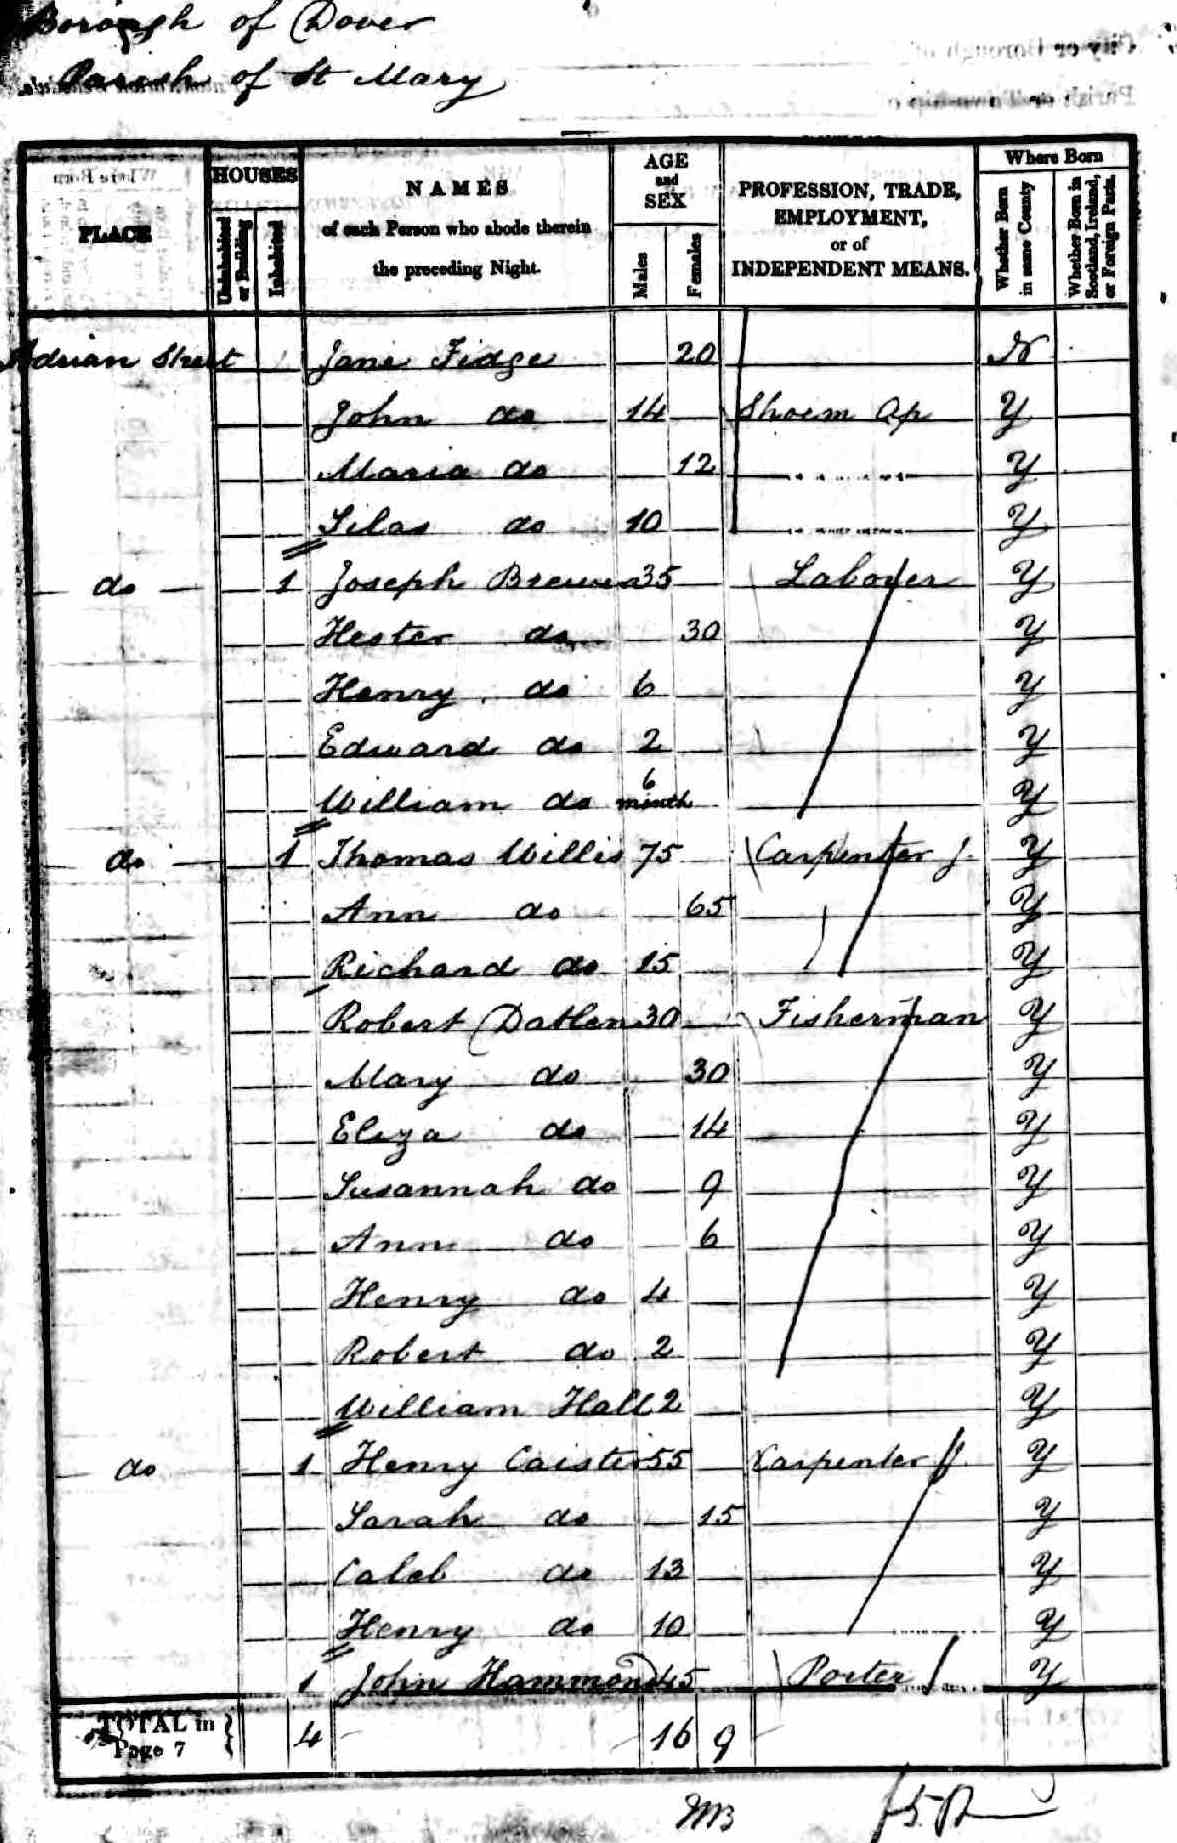 Borough of Dover
Parish of St Mary
PLACE
HOUSES
Uninhabited or Building
Inhabited
NAMES
of each Person who abode therein
the preceding Night.
AGE
and
SEX
Males
Females
PROFESSION, TRADE,
EMPLOYMENT,
or of
INDEPENDENT MEANS.
Where Born
Whether Born in same County
Whether Born in Scotland, Ireland, or Foreign Parts.
Adrian Street Jane Fidge 20 N
John do 14 Shoem Ap Y
Maria do 12 Y
Silas do 10 Y
do 1 Joseph Brewer 35 Laborer Y
Hester do 30 Y
Henry do 6 Y
Edward do 2 Y
William do 6 month Y
do 1 Thomas Willis 75 Carpenter J. Y
Ann do 65 Y
Richard do 15 Y
Robert Datlen 30 Fisherman Y
Mary do 30 Y
Eliza do 14 Y
Susannah do 9 Y
Ann do 6 Y
Henry do 4 Y
Robert do 2 Y
William Hall 2 Y
do 1 Henry Caister 55 Carpenter J. Y
Sarah do 15 Y
Caleb do 13 Y
Henry do 10 Y
1 John Hammond 45 Porter Y
TOTAL in Page 7 4 16 9